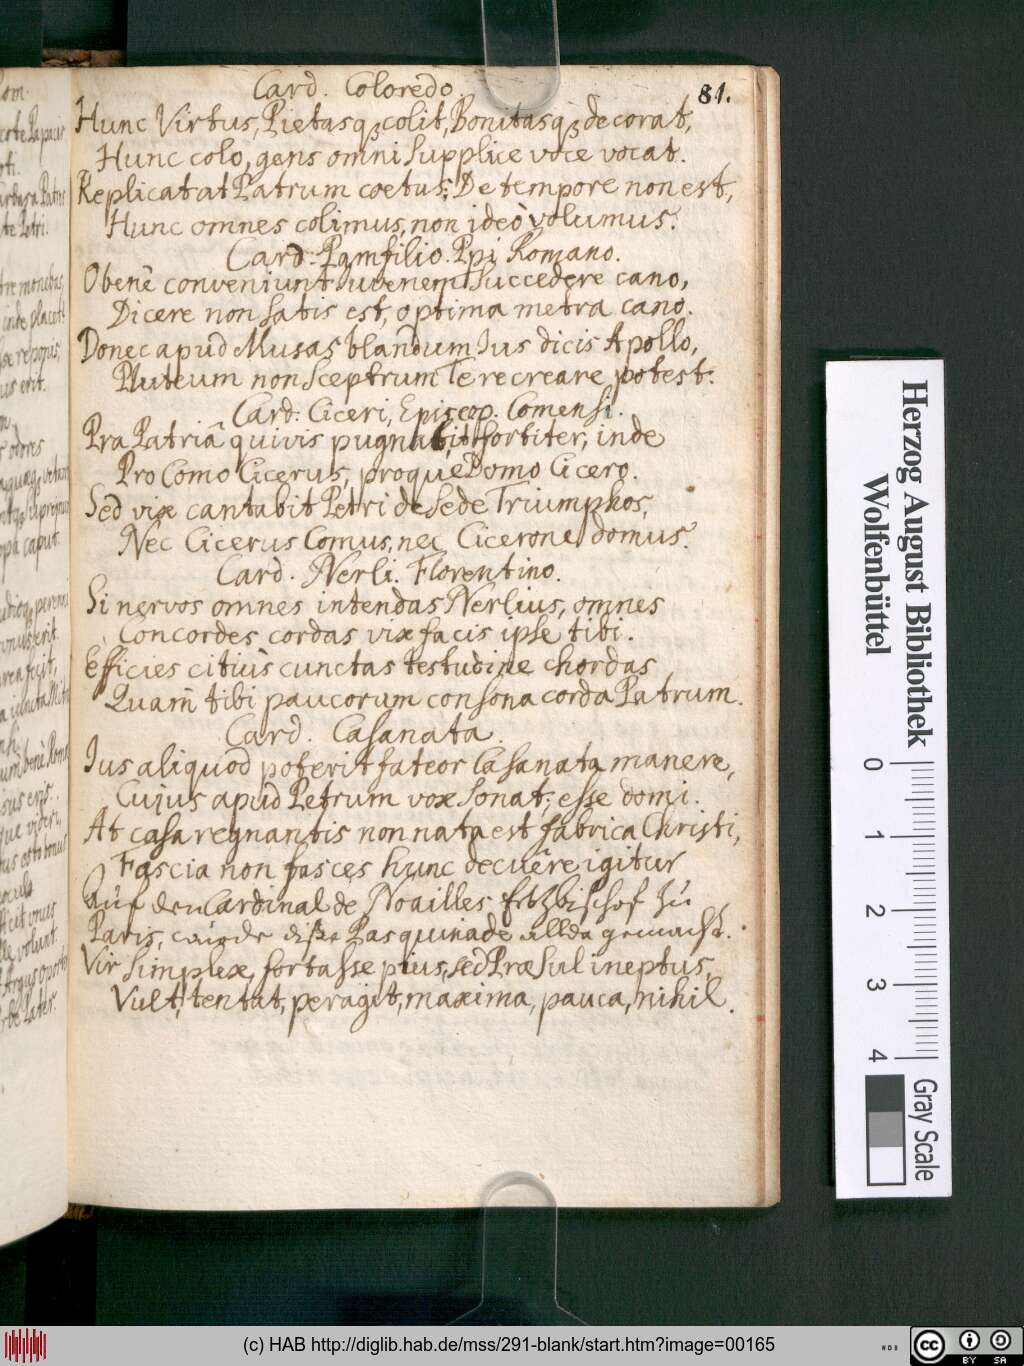 Card. Coloredo.
81.
Hunc Virtus, Pietasq; colit, Bonitasq; decorat,
Hunc colo, gens omni supplice voce vocat.
Replicat at Patrum coetus: De tempore non est,
Hunc omnes colimus, non ideò volumus.
Card. Pamfilio. Ppi Romano.
O bene conveniunt Iuvenem succedere cano,
Dicere non satis est, optima metra cano.
Donec apud Musas blandum Ius dicis Apollo,
Pluteum non Sceptrum Te recreare potest.
Card. Ciceri, Episcop. Comensi.
Pra Patriâ quivis pugnabit fortiter, inde
Pro Como Cicerus, proque Domo Cicero.
Sed vix cantabit Petri de sede Triumphos,
Nec Cicerus Comus, nec Cicerone domus.
Card. Nerli. Florentino.
Si nervos omnes intendas Nerlius, omnes
Concordes cordas vix facis ipse tibi.
Efficies citiùs cunctas testudine chordas
Quam tibi paucorum consona corda Patrum.
Card. Casanata.
Ius aliquod poterit fateor Casanata manere,
Cujus apud Petrum vox sonat, esse domi.
At casa regnantis non nata est fabrica Christi,
Fascia non fasces hunc decuêre igitur
Auf den Cardinal de Noailles Ertzbischof zu
Paris, wurde diese Pasquinade allda gemacht.
Vir simplex, fortasse pius, sed Præsul ineptus,
Vult, tentat, peragit, maxima, pauca, nihil.
Herzog August Bibliothek
Wolfenbüttel
0 1 2 3 4
Gray Scale
(c) HAB http://diglib.hab.de/mss/291-blank/start.htm?image=00165
WDB
cc BY SA